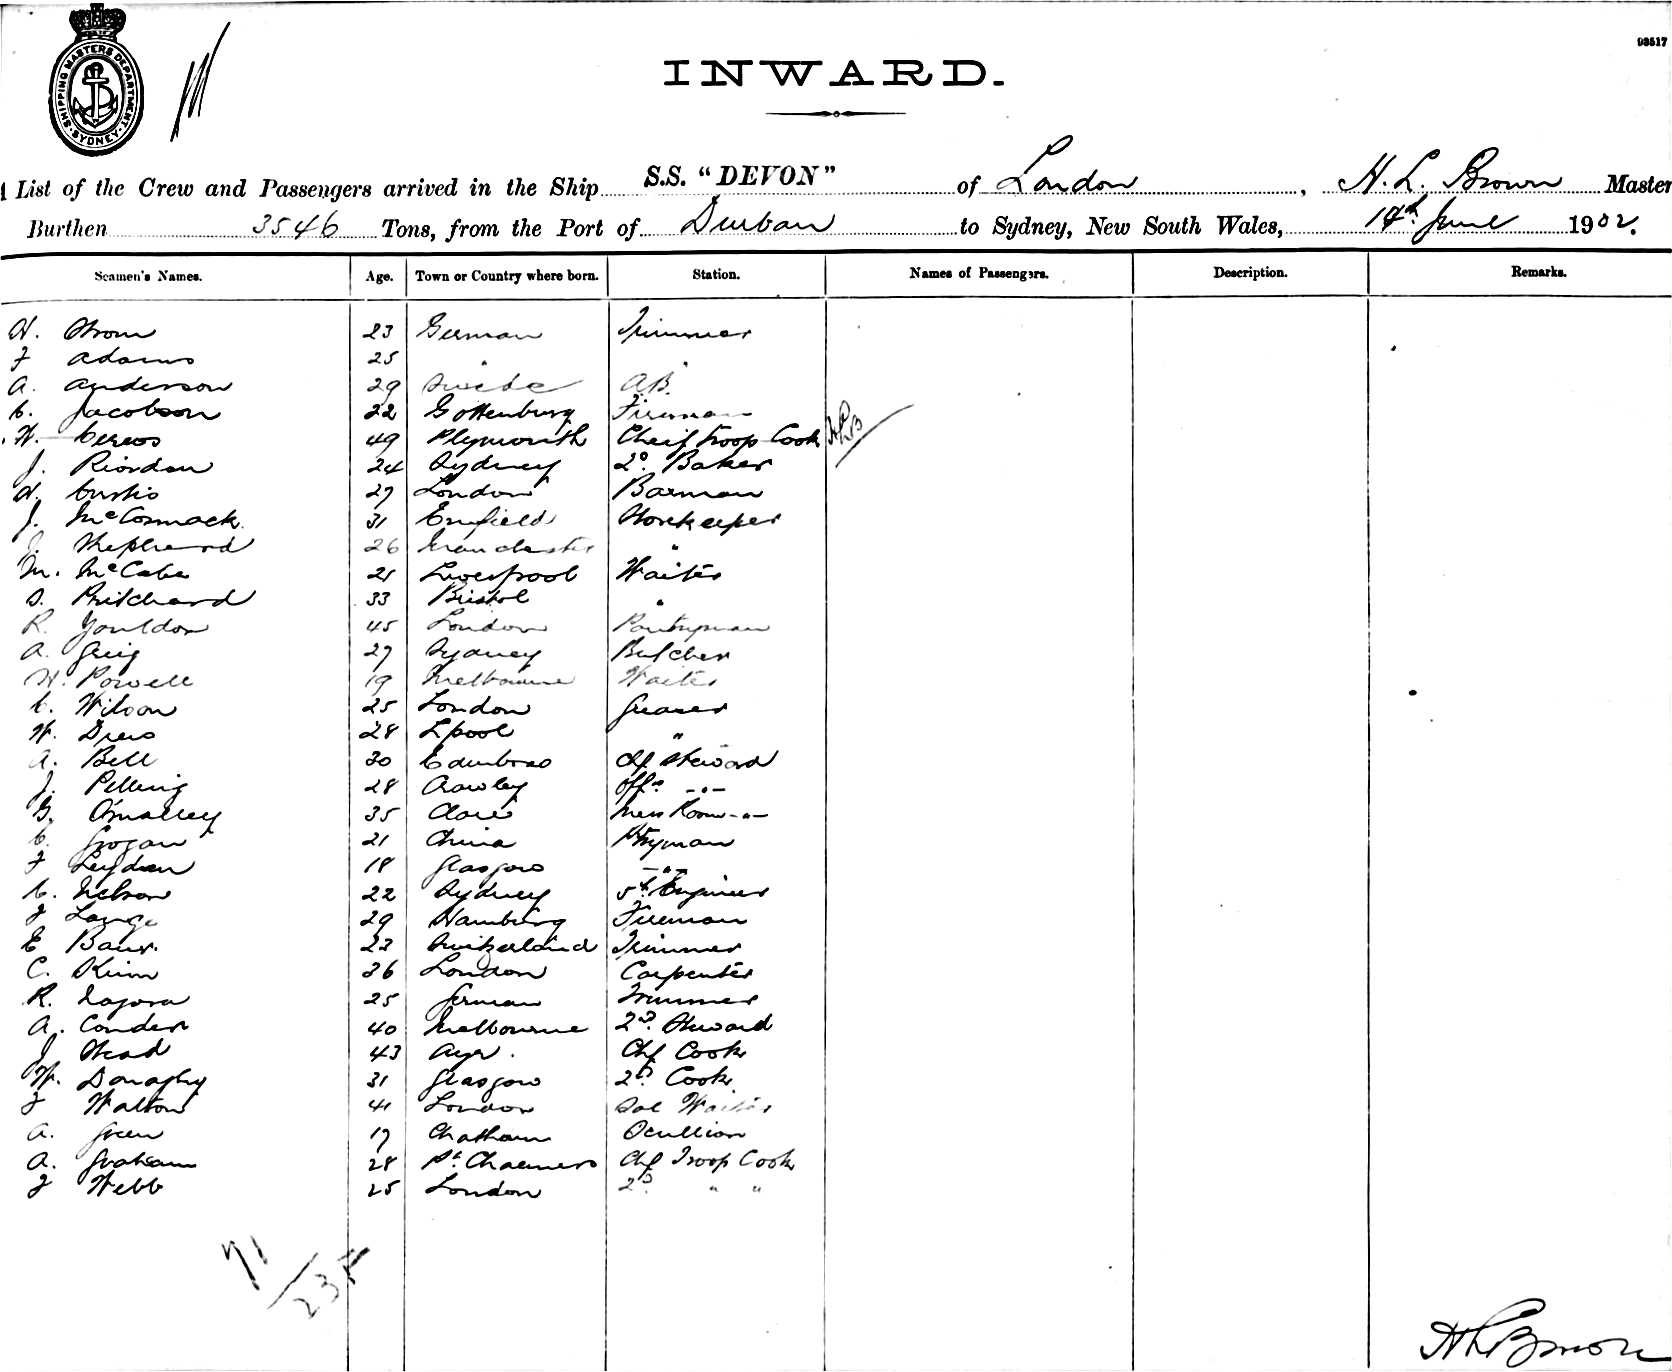 SHIPPING MASTERS DEPARTMENT · SYDNEY
93517
INWARD.
List of the Crew and Passengers arrived in the Ship S.S. "DEVON" of London, H. L. Brown Master
Burthen 3546 Tons, from the Port of Durban to Sydney, New South Wales, 14th June 1902.
Seamen's Names. Age. Town or Country where born. Station. Names of Passengers. Description. Remarks.
23 German Trimmer
F Adams 25 "
A. Anderson 29 Swede A.B.
C. Jacobson 22 Gottenburg Fireman
W. 49 Plymouth Cheif Troop Cook HLB
J. Riordan 24 Sydney 2º. Baker
Curtis 27 London Barman
J. McCormack 31 Enfield Storekeeper
J. Shepherd 26 Manchester "
M. McCabe 21 Liverpool Waiter
S. Pritchard 33 Bristol "
R. Youldon 45 London Pantryman
A. Greig 27 Sydney Butcher
W. Powell 19 Melbourne Waiter
C. Wilson 25 London Greaser
W. Drew 28 L'pool "
A. Bell 30 Edinboro Chf Steward
J. Pelling 28 Crawley Offrs -"-
G. O'Malley 35 Clare Mess Room -"-
C. Grogan 21 China Ptryman
F Leydan 18 Glasgow -"-
C. Nelson 22 Sydney 5th Engineer
F Lange 29 Hamburg Fireman
E Baur. 22 Switzerland Trimmer
C. Skinn 36 London Carpenter
R. 25 German Trimmer
A. Conder 40 Melbourne 2nd. Steward
J Head 43 Ayr. Chf Cook
W. Donaghy 31 Glasgow 2nd. Cook
F Walton 41 London Sal Waiter
A. Green 17 Chatham Scullion
A. Graham 28 Pt. Chalmers Chf Troop Cook
F Webb 25 London 2nd. " "
71
23
HLBrown